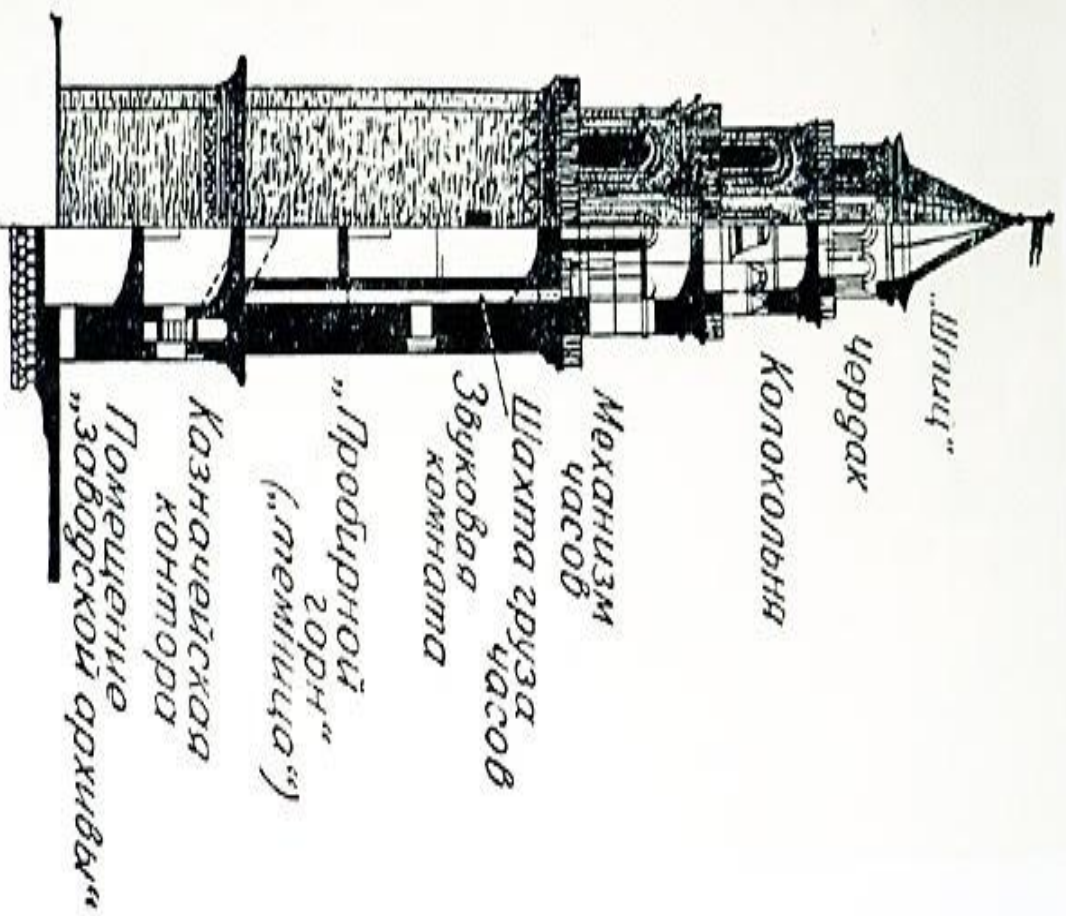 „Шпиц“
Чердак
Колокольня
Механизм
часов
Шахта груза
часов
Звуковая
комната
„Пробирной
горн“
(„темница“)
Казначейская
контора
Помещение
„заводской архивы“